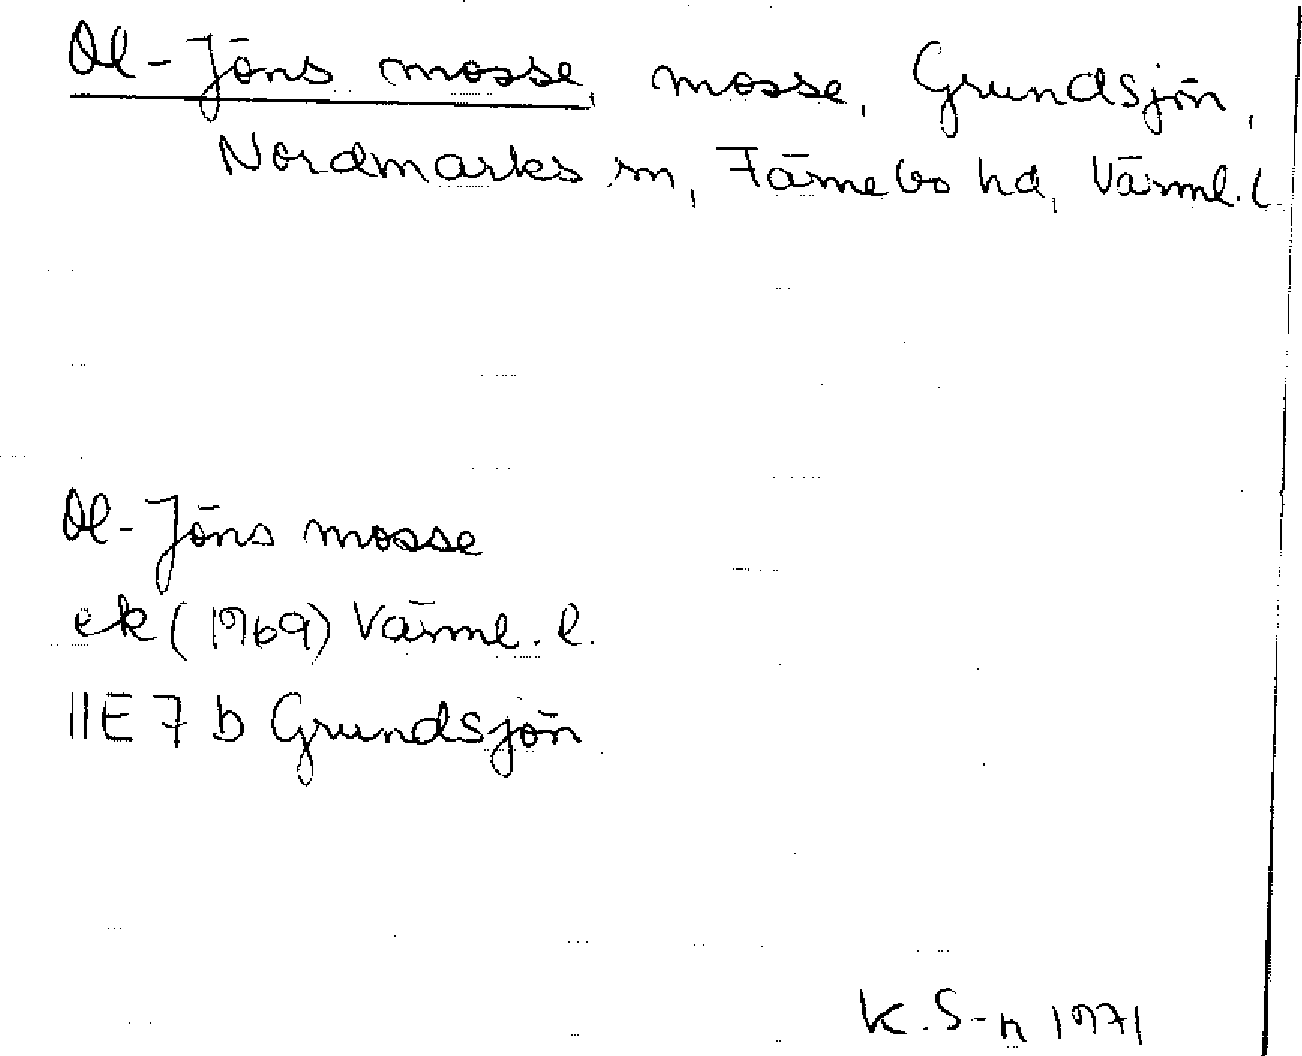 Ol-Jöns mosse, mosse, Grundsjön,
Nordmarks sn, Färnebo hd, Värml. l.
Ol-Jöns mosse
ek (1969) Värml. l.
11E 7 b Grundsjön
K. S-n 1971